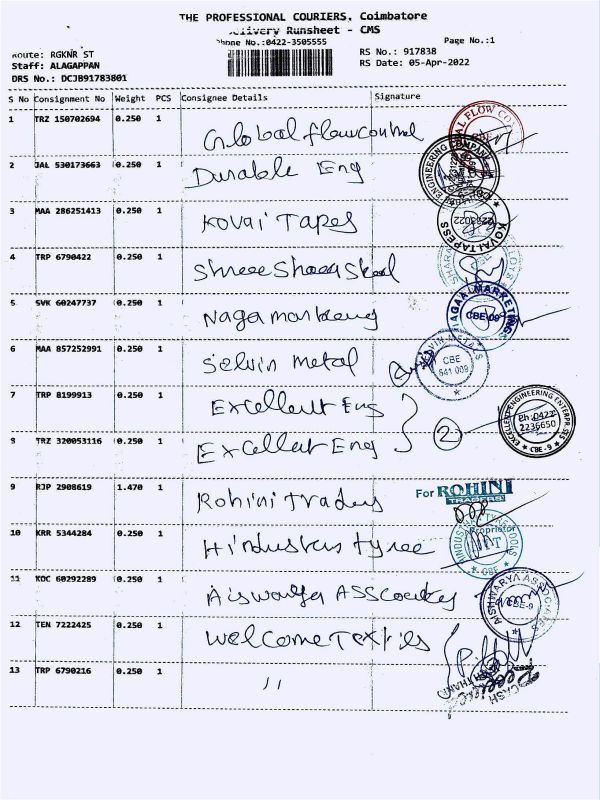 THE PROFESSIONAL COURIERS, Coimbatore
Delivery Runsheet - CMS
Phone No.:0422-3505555 Page No.:1
Route: RGKNR ST RS No.: 917838
Staff: ALAGAPPAN RS Date: 05-Apr-2022
DRS No.: DCJB91783801
S No Consignment No Weight PCS Consignee Details Signature
1 TRZ 150702694 0.250 1 Global flowcontrol
2 JAL 530173663 0.250 1 Durable Eng
ENGINEERING COMPANY
3 MAA 286251413 0.250 1 Kovai Tapes
KOVAI TAPESS
4 TRP 6790422 0.250 1 Shree
5 SVK 60247737 0.250 1 Naga
MARKETING
CBE-09
6 MAA 857252991 0.250 1 Selvin metal
CBE
641 009
7 TRP 8199913 0.250 1 Excellent Eng
8 TRZ 320053116 0.250 1 Excellent Eng
2
EXCELLENT ENGINEERING ENTERPRISES
Ph:0422
2236650
CBE-9
9 RJP 2908619 1.470 1 Rohini traders
For ROHINI
TRADERS
Proprietor
10 KRR 5344284 0.250 1 Hindustan tyree
HINDUSTHAN TYRE TOOLS
CBE
11 KOC 60292289 0.250 1 Aiswarya
AISHWARYA ASSOCIATES
CBE-9
12 TEN 7222425 0.250 1 Welcome
13 TRP 6790216 0.250 1 〃